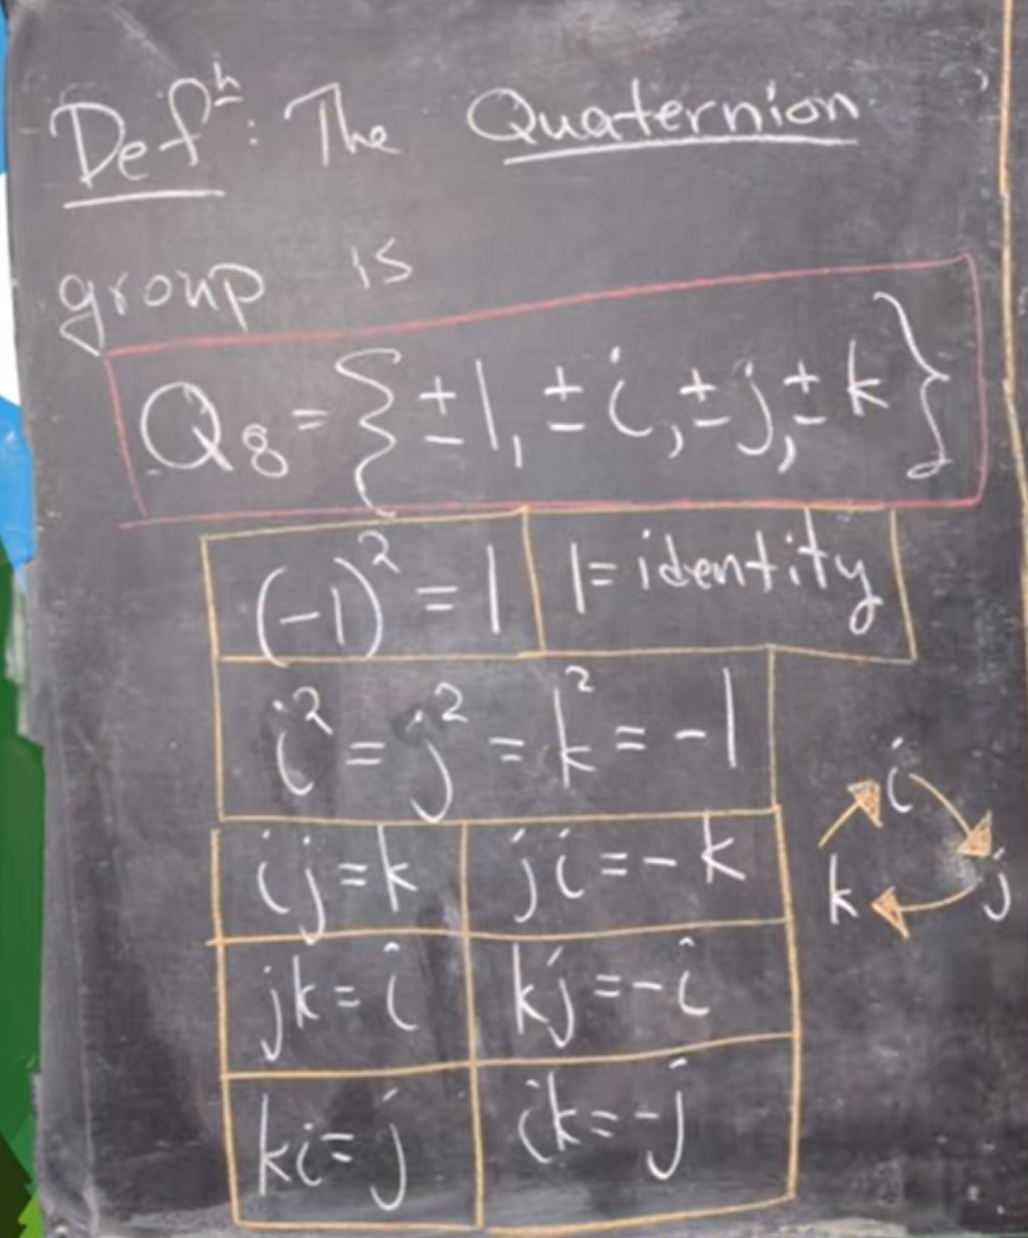 Defⁿ: The Quaternion
group is
Q₈ = {±1, ±i, ±j, ±k}
(-1)² = 1 1 = identity
i² = j² = k² = -1
ij = k ji = -k
jk = i kj = -i
ki = j ik = -j
i
k j